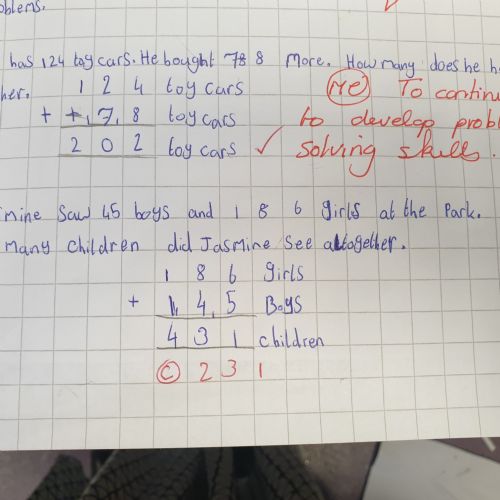 oblems.
has 124 toy cars. He bought 78 8 more. How many does he h
her.
1 2 4 toy cars
+ 1 7 8 toy cars
2 0 2 toy cars ✓
Me To continu
to develop probl
solving skills.
mine saw 45 boys and 1 8 6 girls at the Park.
many children did Jasmine see altogether.
1 8 6 Girls
+ 1 4 5 Boys
4 3 1 children
C 2 3 1